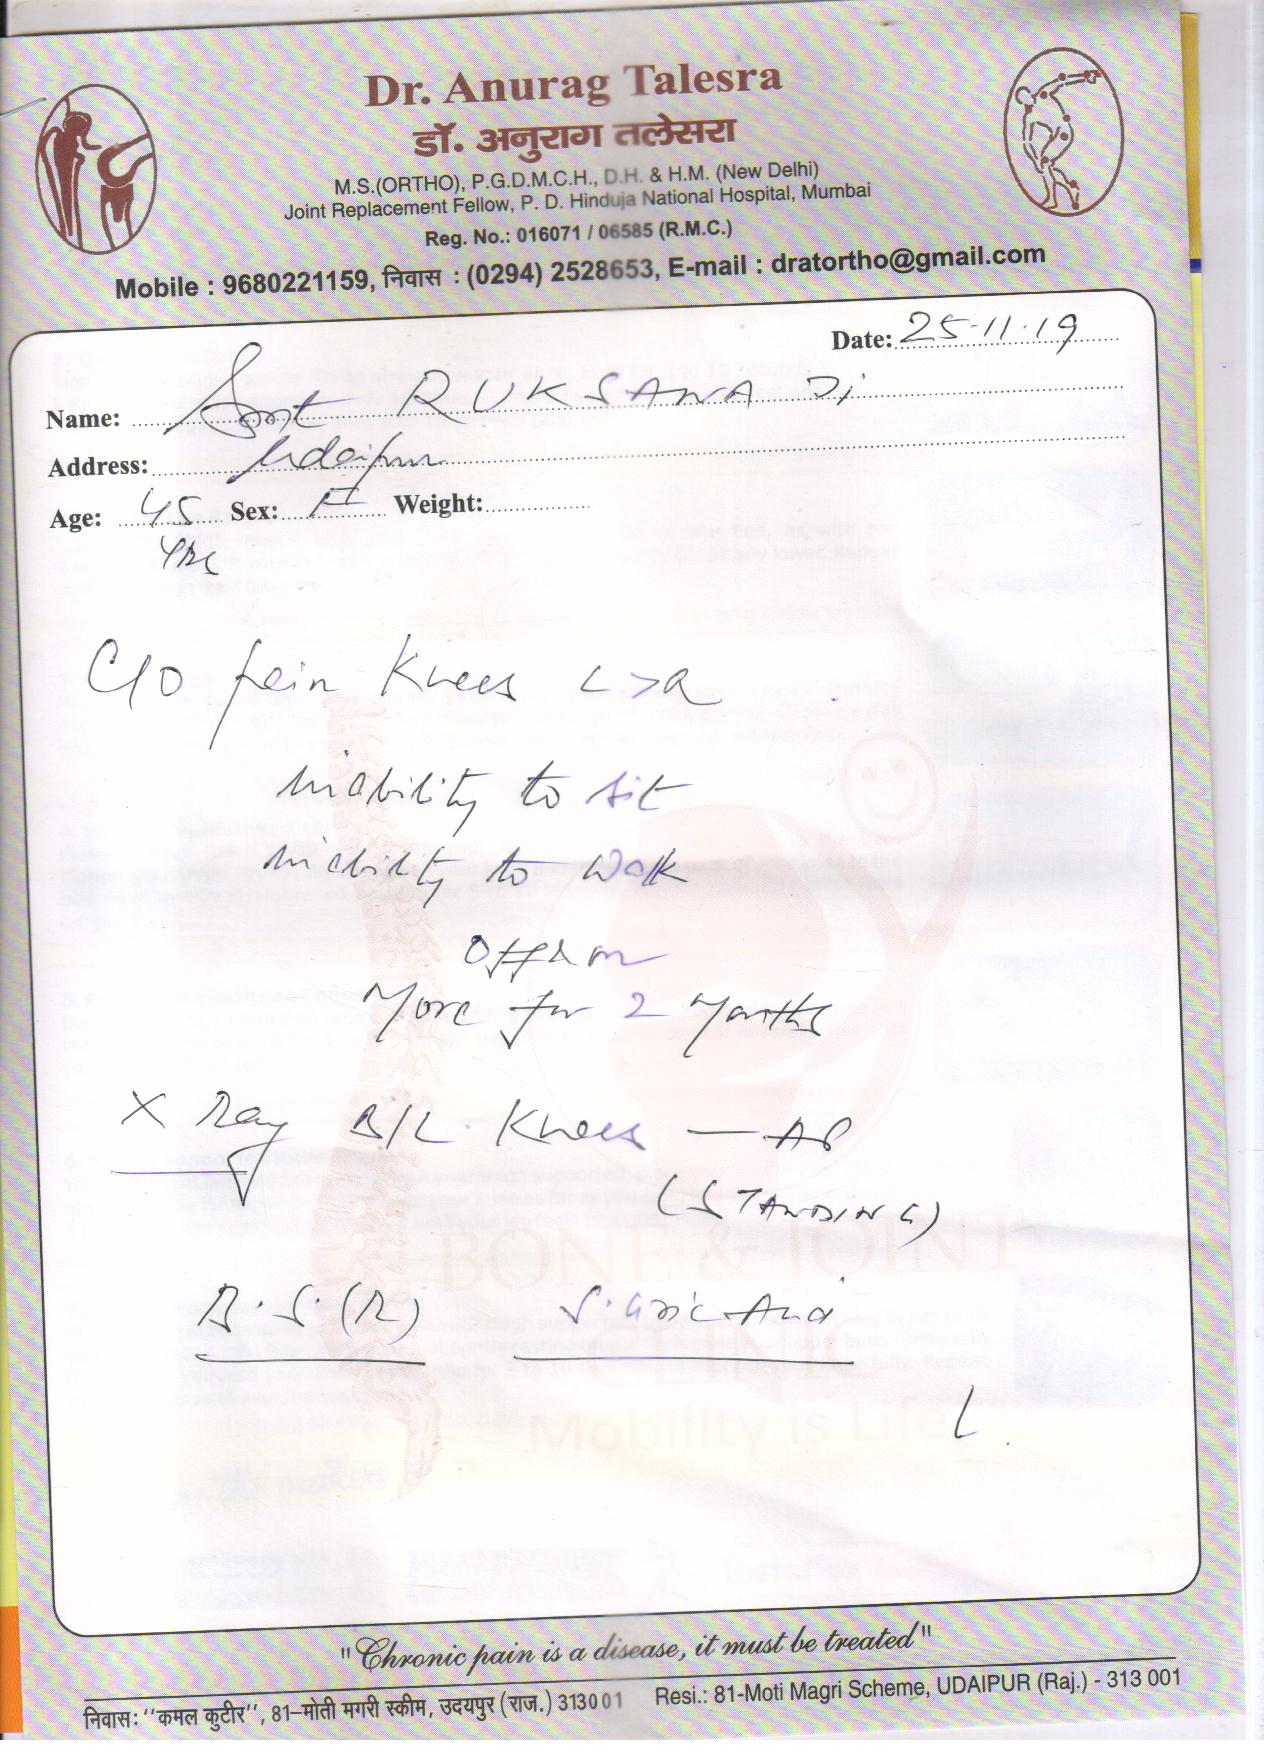 Dr. Anurag Talesra
डॉ. अनुराग तलेसरा
M.S.(ORTHO), P.G.D.M.C.H., D.H. & H.M. (New Delhi)
Joint Replacement Fellow, P. D. Hinduja National Hospital, Mumbai
Reg. No.: 016071 / 06585 (R.M.C.)
Mobile : 9680221159, निवास : (0294) 2528653, E-mail : dratortho@gmail.com
Date: 25.11.19
Name: Smt RUKSANA Ji
Address: Udaipur
Age: 45 Sex: F Weight:
yrs
C/O pain Knees L>R
inability to sit
inability to walk
Off & on
More for 2 Months
X Ray B/L Knees — AP
(STANDING)
B.S.(R) S. Uric Acid
BONE & JOINT
CLINIC
Mobility is Life
"Chronic pain is a disease, it must be treated"
निवास: ‘‘कमल कुटीर’’, 81–मोती मगरी स्कीम, उदयपुर (राज.) 313001 Resi.: 81-Moti Magri Scheme, UDAIPUR (Raj.) - 313 001